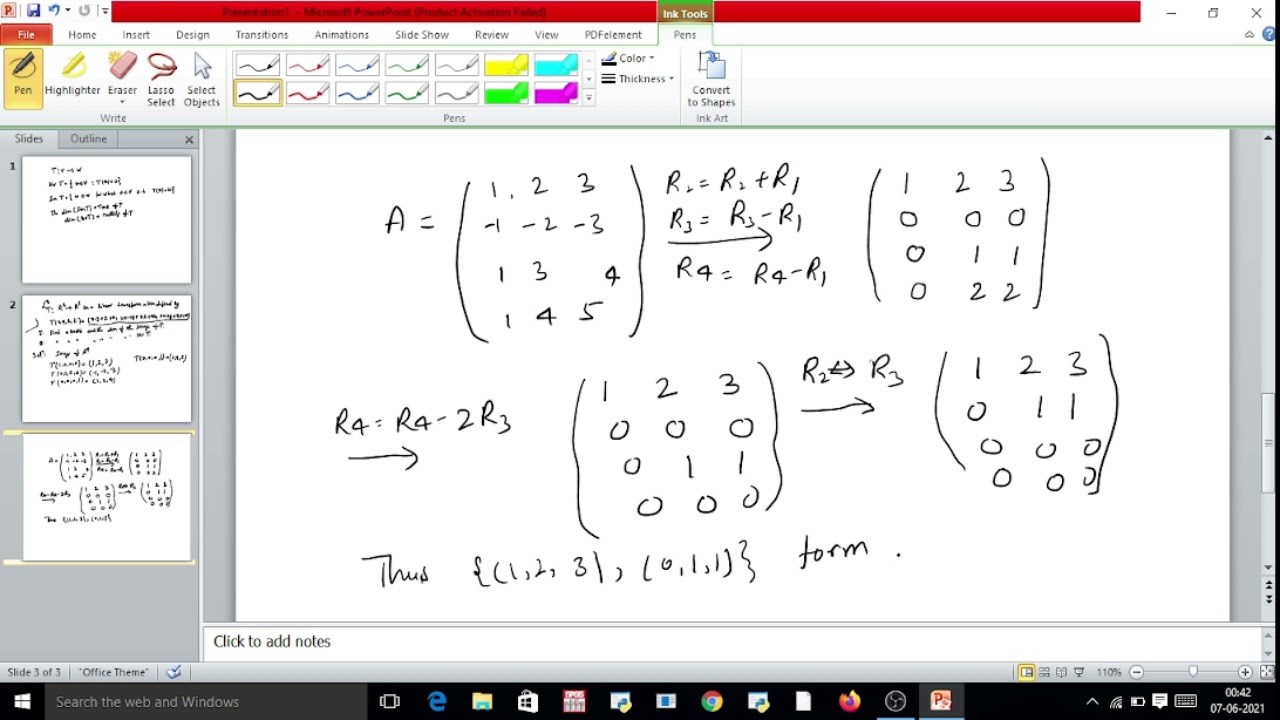 Presentation1 - Microsoft PowerPoint (Product Activation Failed)
Ink Tools
File Home Insert Design Transitions Animations Slide Show Review View PDFelement Pens
Pen Highlighter Eraser Lasso Select Select Objects
Color
Thickness
Convert to Shapes
Write Pens Ink Art
Slides Outline
1
2
A = ( 1, 2 3 R2 = R2 + R1 ( 1 2 3
-1 -2 -3 R3 = R3 - R1 0 0 0
1 3 4 R4 = R4 - R1 0 1 1
1 4 5 ) 0 2 2 )
R4 = R4 - 2R3 ( 1 2 3 R2 ↔ R3 ( 1 2 3
→ 0 0 0 → 0 1 1
0 1 1 0 0 0
0 0 0 ) 0 0 0 )
Thus {(1,2,3), (0,1,1)} form .
Click to add notes
Slide 3 of 3 "Office Theme" 110%
Search the web and Windows
00:42
07-06-2021